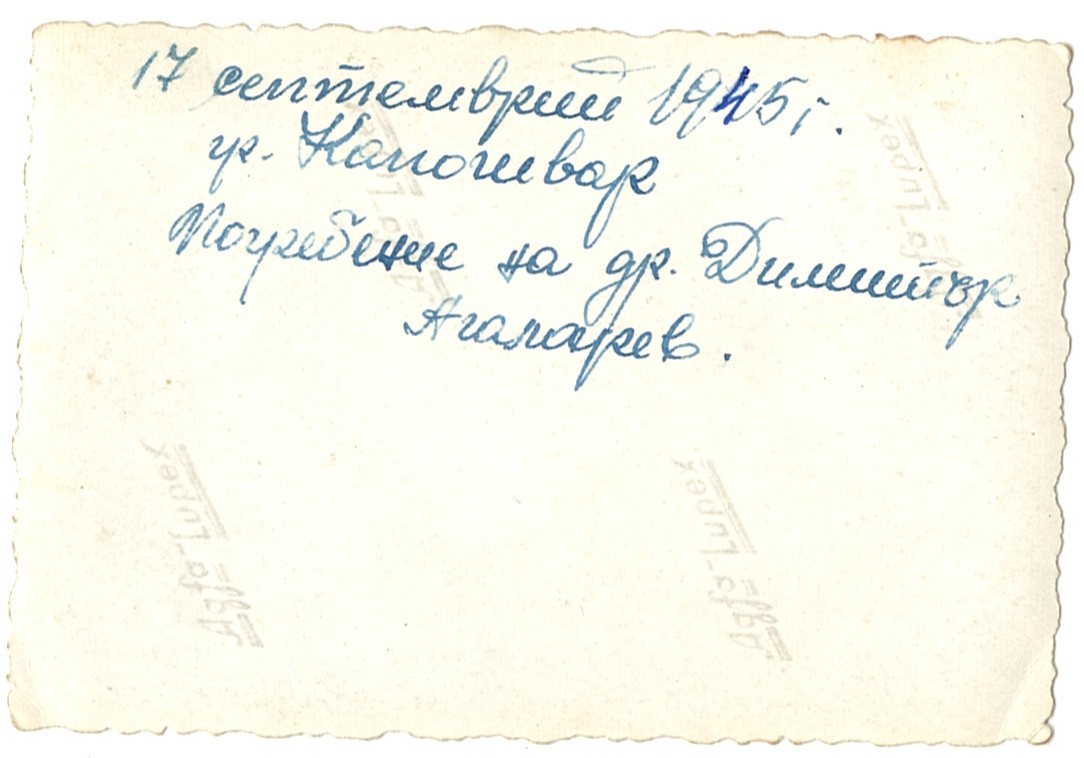 17 септемврий 1945 г.
гр. Капошвар
Погребение на др. Димитър
Агаларев.
Agfa-Lupex
Agfa-Lupex
Agfa-Lupex
Agfa-Lupex